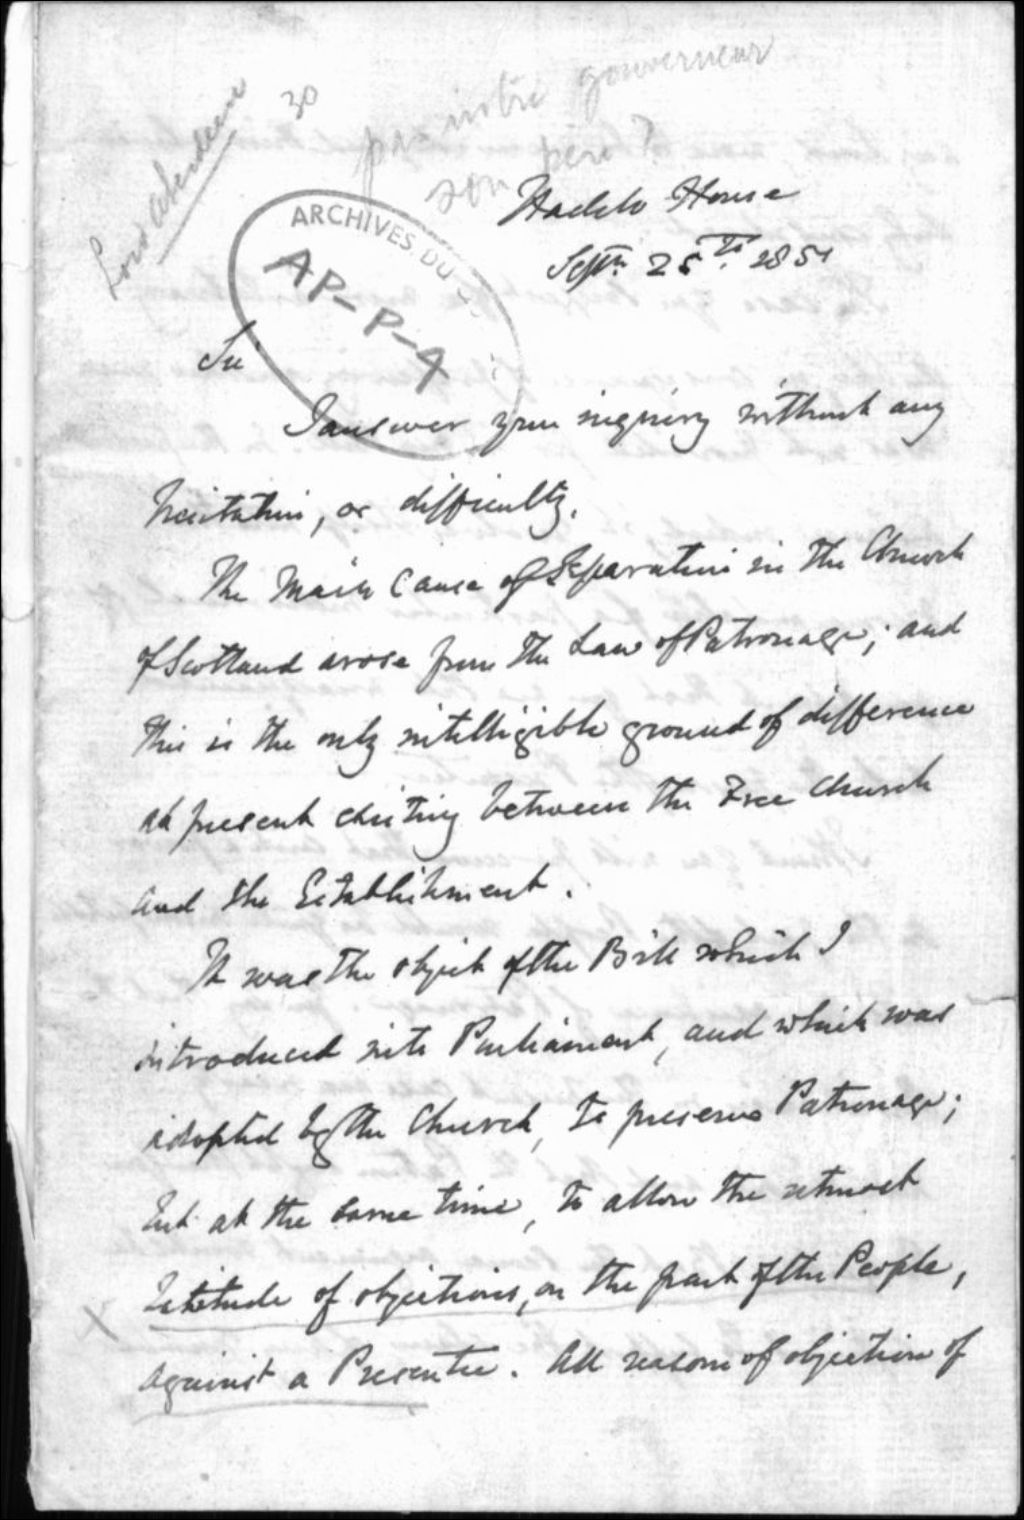 30
Lord Aberdeen
gouverneur
son père ?
ARCHIVES DU
AP-P-4
Haddo House
Septr. 25th. 1851
Sir
I answer your inquiry without any
hesitation, or difficulty.
The Main Cause of Separation in the Church
of Scotland arose from the Law of Patronage; and
this is the only intelligible ground of difference
at present existing between the Free Church
and the Establishment.
It was the object of the Bill which I
introduced into Parliament, and which was
adopted by the Church, to preserve Patronage;
but at the same time, to allow the utmost
latitude of objections, on the part of the People,
against a Presentee. All reasons of objection of
X